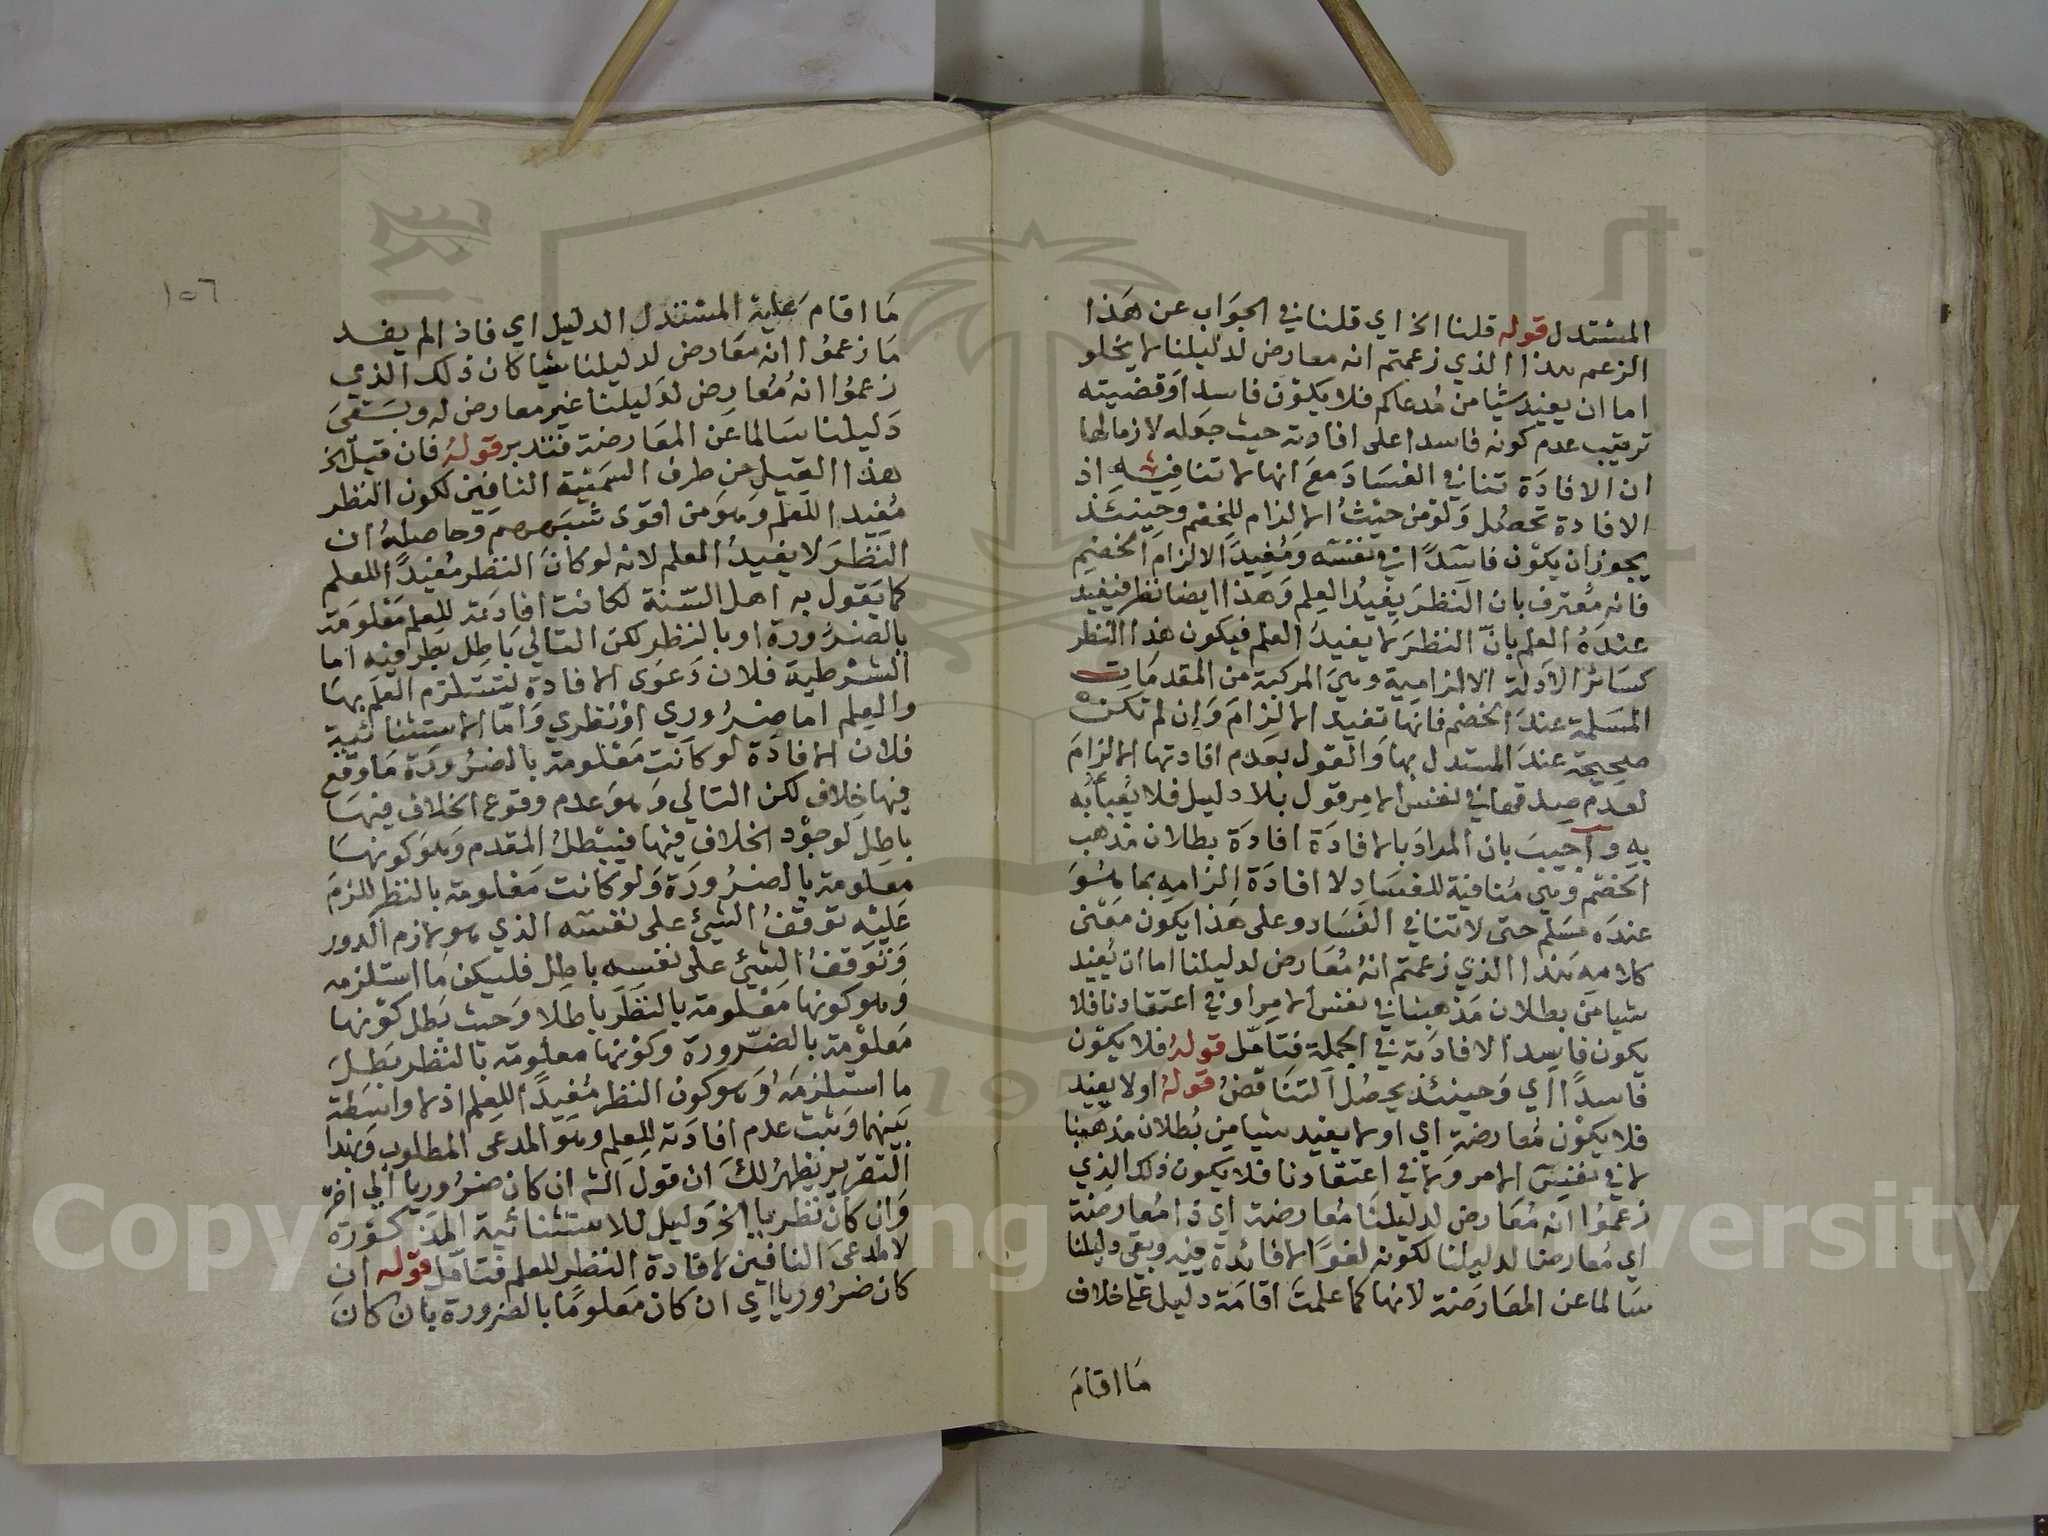 المستدل قوله قلنا الخ اي قلنا في الجواب عن هذا
الزعم هذا الذي زعمتم انه معارض لدليلنا لا يخلو
اما ان يفيد شيا من مُدعاكم فلا يكون فاسدا وقضيته
ترتيب عدم كونه فاسدا على افادته حيث جعله لازما لها
ان الافادَة تنافي الفسَادَ معَ انها لا تنافيه اذ
الافادة تحصُل وَلوْ من حيْثُ الالزام للخصم وحينئذ
يجوز ان يكوْن فاسدًا في نفسه وَمُفيدًا لالزام الخصم
فانه مُعترف بان النظرَ يفيدُ العِلم وَهذا ايضا نظر فيفيد
عندَهُ العلم بانّ النظرَ لا يفيدُ العلم فيكون هذا النظر
كسَائر الأدلة الالزامية وهيَ المركبة من المقدمَات
المسَلمة عندَ الخصْم فانها تفيد الالزامَ وَإن لم تكن
صحيحة عندَ المستدل بها وَالقول بعَدم افادتها الالزامَ
لعدم صِدقها في نفس الامر قول بلا دليل فلا يُعبأ به
به واجيبَ بان المرادَ بالافادَة افادَة بطلان مذهب
الخصْم وهي مُنافية للفسَاد لا افادَة الزامه بما هُوَ
عندَه مسَلم حتى لا تنافي الفسَاد وعلى هَذا يكون مَعْنى
كلامه هَذا الذي زعمتم انهُ مُعَارض لدليلنا اما ان يُفيد
شيا منَ بطلان مَذهبنا في نفس الامر او في اعتقادنا فلا
يكون فاسِدا لافادَته في الجملة فتامّل قولهُ فلا يكوْن
فاسدًا اي وَحينئذ يحصُل التنَاقضُ قولهُ اولا يفيد
فلا يكوْن مُعَارضة اي او لا يفيد شيا من بُطلان مذهَبنا
لا في نفس الامر وَلا في اعتقادنا فلا يكون ذلك الذي
زعموُا انه مُعَارض لدليلنَا مُعارضة اي ذا مُعارضة
اي مُعارضا لدليلنا لكونه لغوًا لا فائدة فيه وبقي دليلنا
سَالما عن المعَارَضة لانها كما علمتَ اقامَة دليل على خلاف
مَا اقامَ
١٥٦
مَا اقامَ عَليه المستدل الدليل اي فاذا لم يفد
مَا زعمُوا انه مَعَارض لدليلنا شيا كان ذلك الذي
زعموُا انهُ مُعَارض لدَليلنا غير معارض له ويبقىَ
دَليلنا سَالما عَن المعَارضة فتدبر قولهُ فان قيل الخ
هذا القيل من طرف السمنية النافين لكون النظر
مُفيدا للعلم وَهوَ منْ اقوى شبههم وحاصلهُ ان
النظرَ لا يفيدُ العلم لانه لو كانَ النظر مُفيدًا للعلم
كما يَقول به اهل السنة لكانت افادَته للعلم مَعْلومَة
بالضرُورة او بالنظر لكن التالي بَاطِل بطرفيه اما
الشرْطية فلان دَعوَى الافادَة تسْتلزم العلمَ بهَا
والعِلم اما ضرُوري اوْ نظري وَامّا الاستثنائية
فلان الافادَة لو كانت مَعْلومة بالضرُورَة مَا وقع
فيها خِلاف لكن التالي وَهوَ عدم وقوع الخلاف فيهَا
باطل لوجوْد الخلاف فيها فيبْطلُ المقدم وَهوَ كونهَا
معلومة بالضرُورَة وَلو كانت مَعْلومة بالنظر للزمَ
عَليْه توَقفُ الشيئ على نفسه الذي هو لازم الدور
وَتوَقفُ الشيئ على نفسه باطل فليكن مَا استلزمه
وَهو كونها مَعْلومة بالنظَر باطلا وَحيث بَطل كوْنها
مَعلوْمة بالضّرورة وكوْنها معلومة بالنظر بَطلَ
ما استلزمَهُ وَهو كون النظر مُفيدًا للعِلم اذ لا واسَطة
بَينهما وَثبت عدم افادَته للعِلم وهوَ المدعى المطلوب وَبهذا
التقرير يظهرُ لكَ ان قولَ الشه ان كان ضرُوريا الى اخره
وَان كانَ نظريا الخ دَليل للاستثنائية المذكوْرة
لا لمدعىَ النافين لافادة النظر للعلم فتامّل قوله ان
كان ضرُوريا اي ان كان مَعلومًا بالضرورة بان كانَ